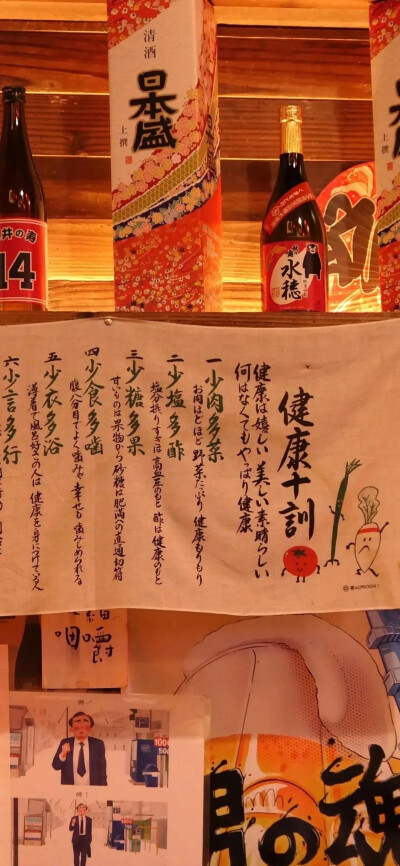 清酒
日本盛
上撰
井の寿
14
水穂
健康十訓
健康は嬉しい 美しい 素晴らしい
何はなくてもやっぱり健康
一 少肉多菜
お肉はほどほど 野菜たっぷり 健康もりもり
二 少塩多酢
塩分摂りすぎは高血圧のもと 酢は健康のもと
三 少糖多果
甘いものは果物から 砂糖は肥満への直通切符
四 少食多噛
腹八分目でよく噛みや 幸せも噛みしめられる
五 少衣多浴
薄着で風呂好きの人は 健康を身に付けている人
六 少言多行
の魂